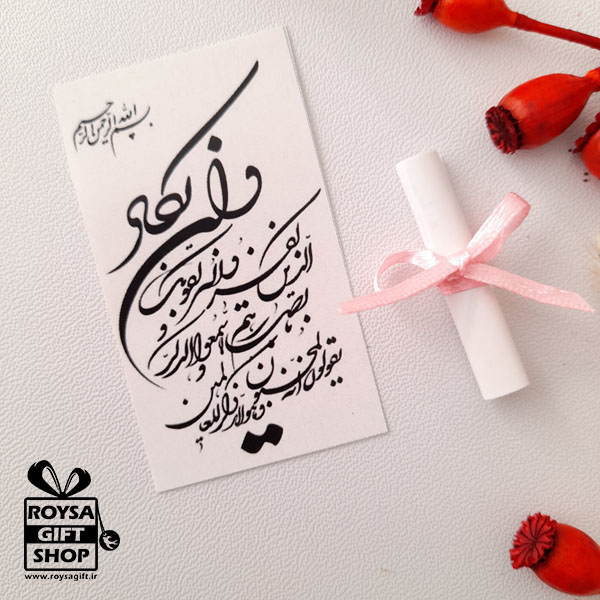 بسم الله الرحمن الرحیم
وان یکاد
الذین کفروا لیزلقونک
بابصارهم لما سمعوا الذکر و
یقولون انه لمجنون
و ما هو الا ذکر للعالمین
ROYSA
GIFT
SHOP
www.roysagift.ir